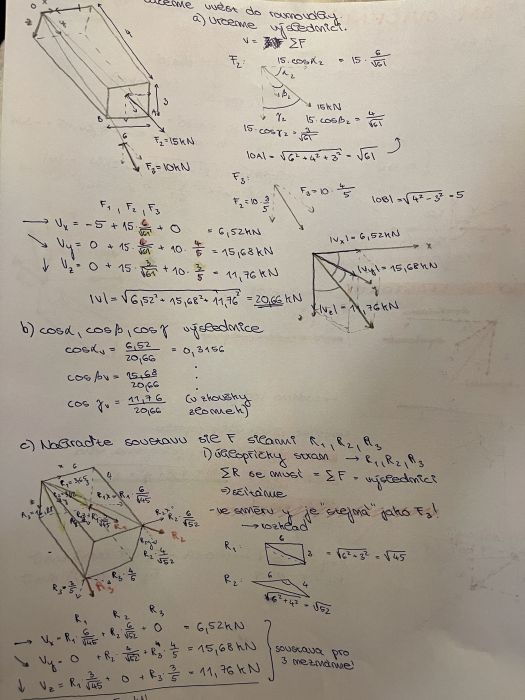 uvést do rovnováhy
a) Určeme výslednici.
V = ΣF
F₂: 15·cosα₂ = 15·6/√61
α₂
β₂
γ₂
15kN
15·cosβ₂ = 4/√61
15·cosγ₂ = 3/√61
|OA| = √(6²+4²+3²) = √61
4
3
6
B
F₂=15kN
F₃=10kN
F₃:
F₂=10·3/5
F₃=10·4/5
|OB| = √(4²-3²) = 5
F₁, F₂, F₃
→ Vx = -5 + 15·6/√61 + 0 = 6,52kN
↘ Vy = 0 + 15·6/√61 + 10·4/5 = 15,68kN
↓ Vz = 0 + 15·3/√61 + 10·3/5 = 11,76kN
|V| = √(6,52²+15,68²+11,76²) = 20,66kN
|Vx| = 6,52kN
x
|Vy| = 15,68kN
y
|Vz| = 11,76kN
b) cosα, cosβ, cosγ výslednice
cosαv = 6,52/20,66 = 0,3156
cosβv = 15,68/20,66 ⋮
cosγv = 11,76/20,66 (u zkoušky zlomek)
c) Nahraďte soustavu sil F silami R₁, R₂, R₃
1) úhlopříčky stran → R₁, R₂, R₃
ΣR se musí = ΣF = výslednici
⇒ sčítáme
- ve směru y je "stejná" jako F₃!
→ rozklad
R₁: 6 3 = √(6²+3²) = √45
R₂: 6 4 √(6²+4²) = √52
x 6 4
R₂·6/√52
R₂
R₂·4/√52
R₃·4/5
R₃·3/5
R₃
R₁ R₂ R₃
→ Vx = R₁·6/√45 + R₂·6/√52 + 0 = 6,52kN
↘ Vy = 0 + R₂·4/√52 + R₃·4/5 = 15,68kN
↓ Vz = R₁·3/√45 + 0 + R₃·3/5 = 11,76kN
soustava pro
3 neznámé!